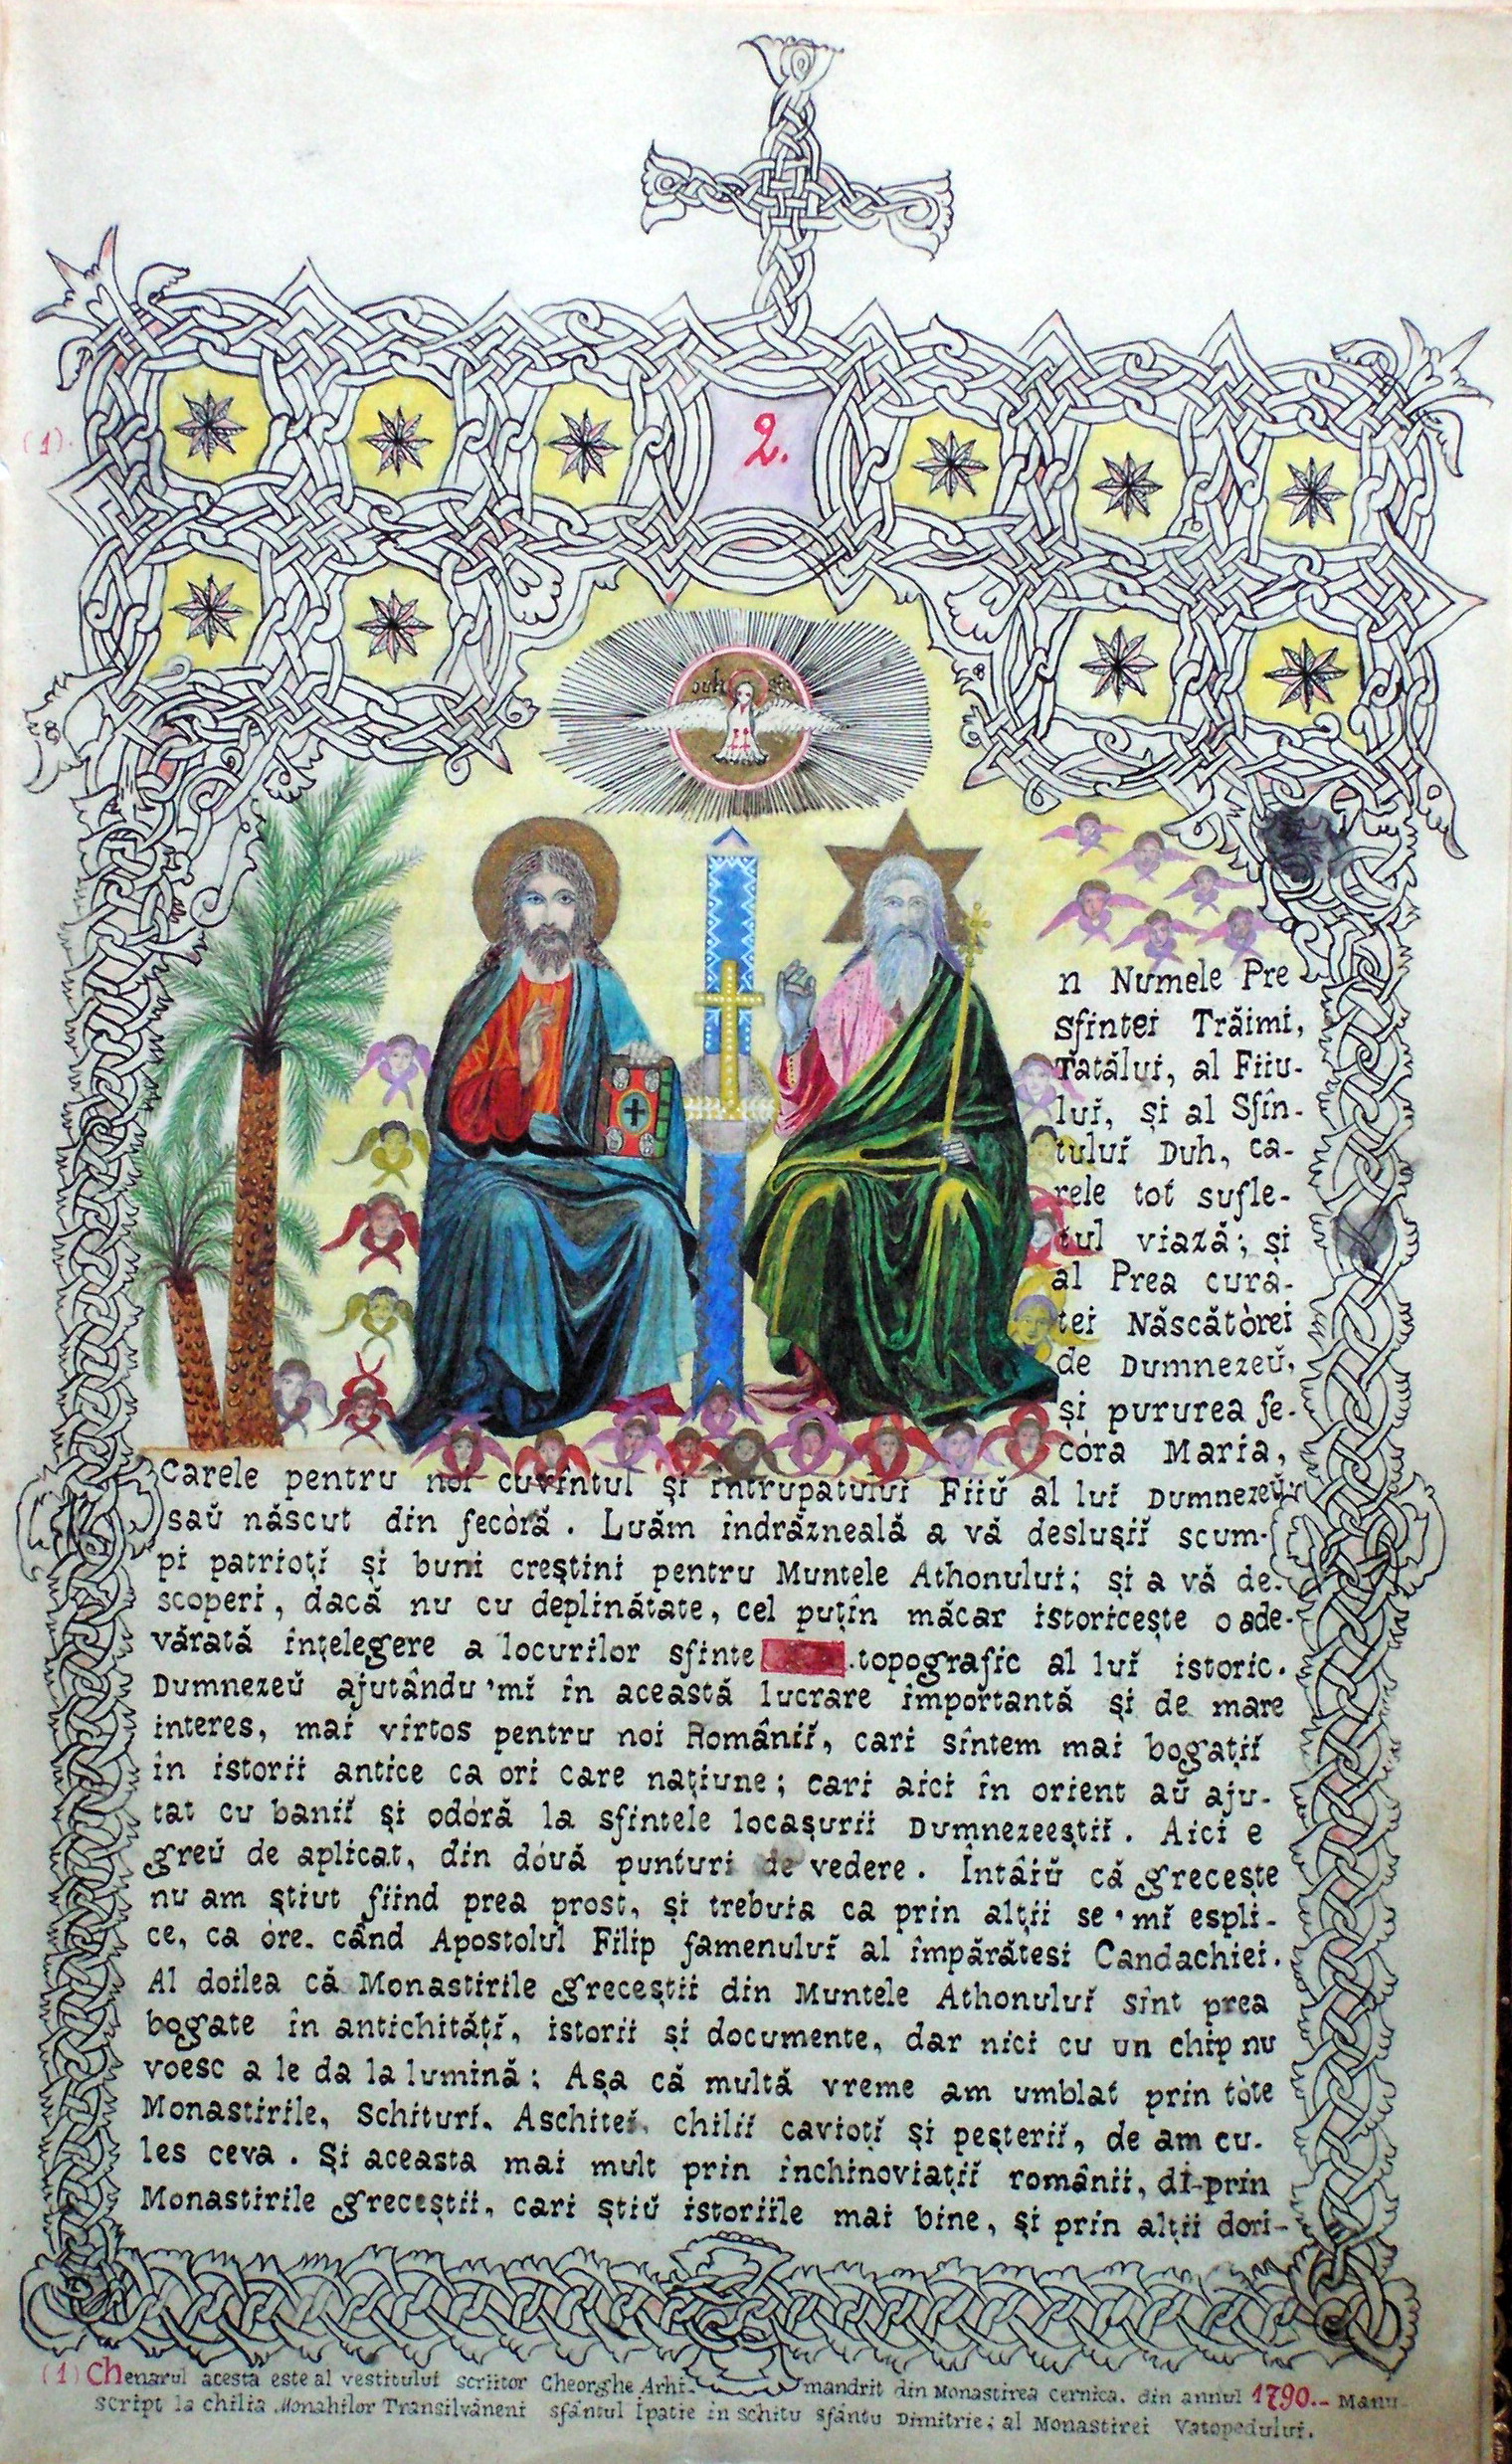 (1).
2.
n Numele Pre
sfintei Trăimi,
Tatălui, al Fiiu-
luĭ, și al Sfîn-
tuluĭ Duh, ca-
rele tot sufle-
tul viază; și
al Prea cura-
tei Născătòrei
de Dumnezeŭ,
și pururea fe-
còra Maria,
Carele pentru noi cuvîntul și întrupatuluĭ Fiiŭ al luĭ Dumnezeŭ;
saŭ născut din fecòră. Luăm îndrăzneală a vă deslușiĭ scum-
pi patrioțĭ și buni creștini pentru Muntele Athonului; și a vă de-
scoperi, dacă nu cu deplinătate, cel puțin măcar istoricește o ade-
vărată înțelegere a locurilor sfinte .topografic al luĭ istoric.
Dumnezeŭ ajutându'mĭ în această lucrare importantă și de mare
interes, mai vîrtos pentru noi Româniĭ, cari sîntem mai bogațiĭ
în istorii antice ca ori care națiune; cari aici în orient aŭ aju-
tat cu baniĭ și odòră la sfintele locașurii Dumnezeeștiĭ. Aici e
greŭ de aplicat, din dòuă punturi de vedere. Întâiŭ că grecește
nu am știut fiind prea prost, și trebuia ca prin alții se'mĭ espli-
ce, ca òre. când Apostolul Filip famenuluĭ al împărătesi Candachiei.
Al doilea că Monastirile greceștii din Muntele Athonuluĭ sînt prea
bogate în antichitățĭ, istorii și documente, dar nici cu un chip nu
voesc a le da la lumină; Așa că multă vreme am umblat prin tòte
Monastirile, Schiturĭ. Aschiteĭ. chiliĭ cavioțĭ și peșteriĭ, de am cu-
les ceva. Și aceasta mai mult prin închinoviațiĭ românii, di-prin
Monastirile greceștii, cari știŭ istoriile mai bine, și prin alții dori-
(1) Chenarul acesta este al vestituluĭ scriitor Gheorghe Arhi- mandrit din Monastirea Cernica. din annul 1790.- Manu-
script la chilia Monahilor Transilvăneni sfântul Ipatie in schitu sfântu Dimitrie; al Monastirei Vatopeduluĭ.